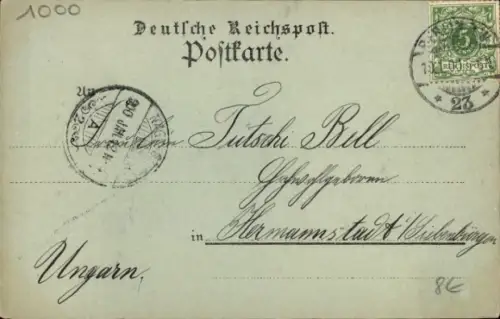 1000
Deutsche Reichspost.
Postkarte.
5
An
23
Tutschi Bell
Hochwohlgeboren
in Hermannstadt / Siebenbürgen
Ungarn.
8€